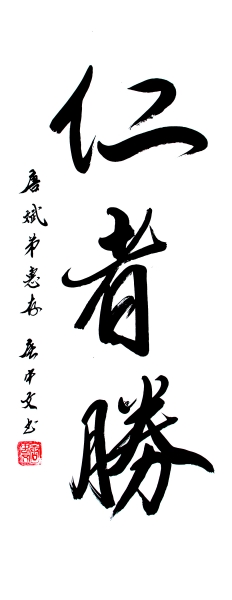 仁者勝
唐斌弟惠存 吴中文书